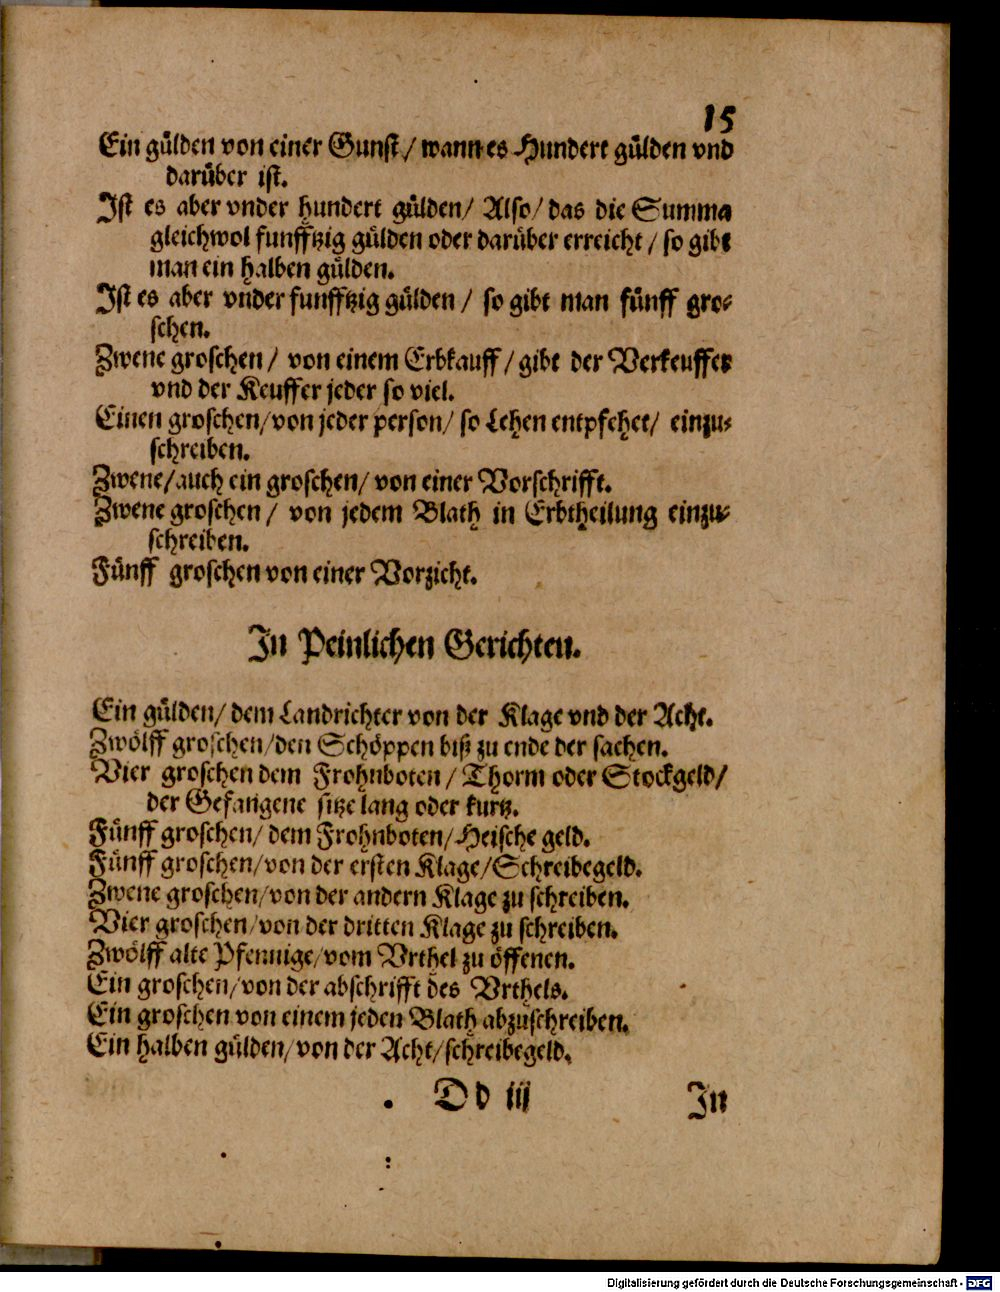 15
Ein gülden von einer Gunst / wann es Hundert gülden vnd
darüber ist.
Ist es aber vnder hundert gülden / Also / das die Summa
gleichwol funfftzig gülden oder darüber erreicht / so gibt
man ein halben gülden.
Ist es aber vnder funfftzig gülden / so gibt man fünff gro-
schen.
Zwene groschen / von einem Erbkauff / gibt der Verkeuffer
vnd der Keuffer jeder so viel.
Einen groschen / von jeder person / so Lehen entpfehet / einzu-
schreiben.
Zwene / auch ein groschen / von einer Vorschrifft.
Zwene groschen / von jedem Blath in Erbtheilung einzu-
schreiben.
Fünff groschen von einer Vorzicht.
In Peinlichen Gerichten.
Ein gülden / dem Landrichter von der Klage vnd der Acht.
Zwölff groschen / den Schöppen biß zu ende der sachen.
Vier groschen dem Frohnboten / Thorm oder Stockgeld /
der Gefangene sitze lang oder kurtz.
Fünff groschen / dem Frohnboten / Heische geld.
Fünff groschen / von der ersten Klage / Schreibegeld.
Zwene groschen / von der andern Klage zu schreiben.
Vier groschen / von der dritten Klage zu schreiben.
Zwölff alte Pfennige / vom Vrthel zu öffenen.
Ein groschen / von der abschrifft des Vrthels.
Ein groschen von einem jeden Blath abzuschreiben.
Ein halben gülden / von der Acht / schreibegeld.
Dd iij
In
Digitalisierung gefördert durch die Deutsche Forschungsgemeinschaft - DFG